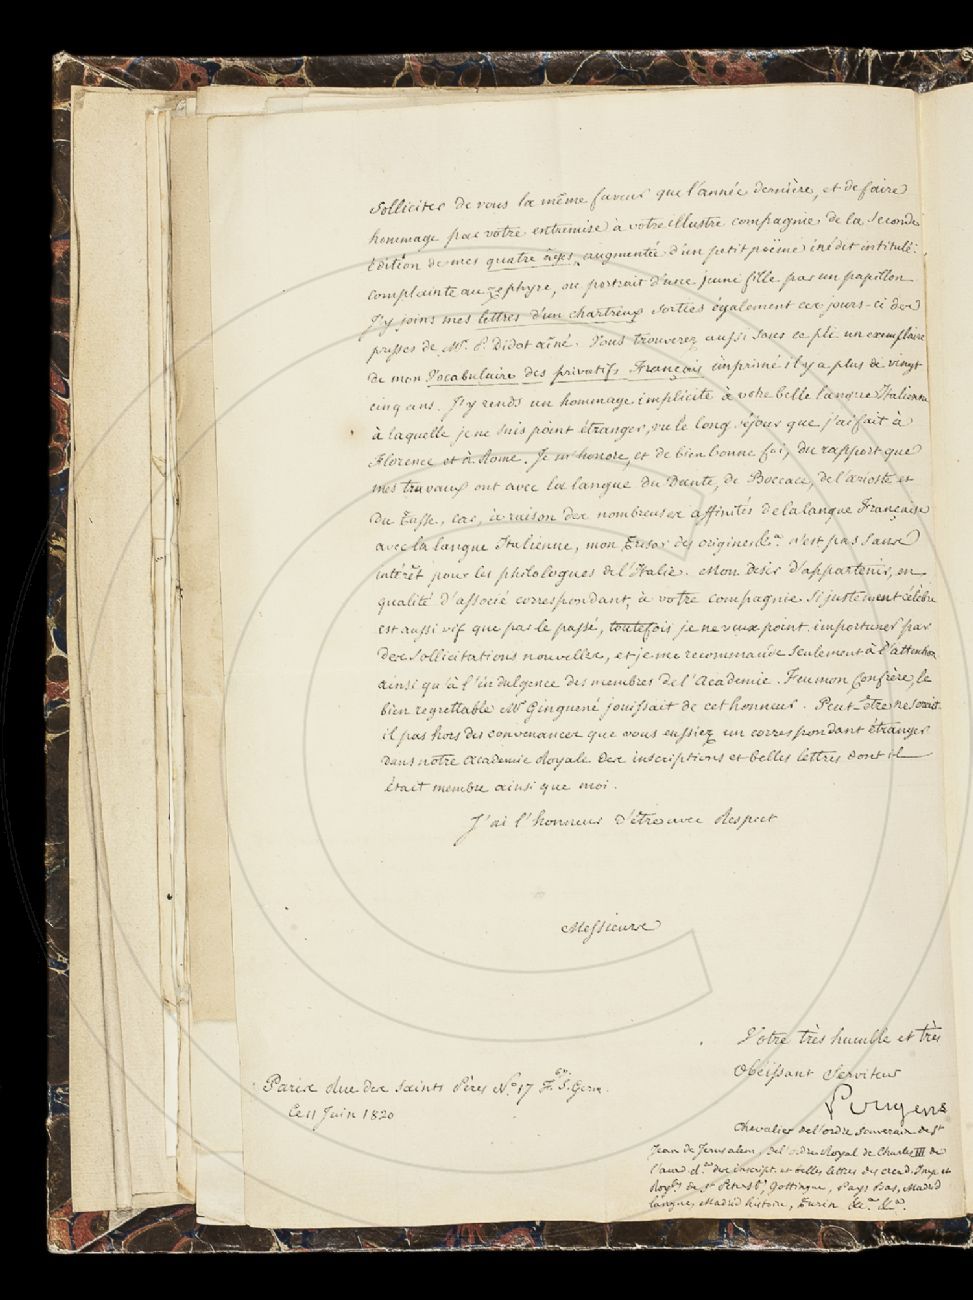 Solliciter de vous la même faveur que l'année dernière, et de faire
hommage par votre entremise à votre illustre compagnie de la seconde
édition de mes quatre âges, augmentée d'un petit poëme inédit intitulé:
complainte au zephyre, ou portrait d'une jeune fille par un papillon
J'y joins mes lettres d'un chartreux sorties également ces jours-ci des
presses de Mr. P. Didot aîné. Vous trouverez aussi sous ce pli un exemplaire
de mon Vocabulaire des privatifs Français imprimé il y a plus de vingt
cinq ans. J'y rends un hommage implicite à votre belle langue Italienne
à laquelle je ne suis point étranger, vu le long séjour que j'ai fait à
Florence et à Rome. Je m'honore, et de bien bonne foi, du rapport que
mes travaux ont avec la langue du Dante, de Boccace, de l'arioste et
du Tasse, car, à raison des nombreuses affinités de la langue Française
avec la langue Italienne, mon Tresor des origines &c.a n'est pas sans
intérêt pour les philologues de l'Italie. Mon desir d'appartenir, en
qualité d'associé correspondant, à votre compagnie si justement célèbre
est aussi vif que par le passé, toutefois je ne veux point importuner par
des sollicitations nouvelles, et je me recommande seulement à l'attention
ainsi qu'à l'indulgence des membres de l'Academie. Feu mon confrère, le
bien regrettable Mr Ginguené jouissait de cet honneur. Peut-être ne serait
il pas hors des convenances que vous eussiez un correspondant étranger
dans notre Academie Royale des inscriptions et belles lettres dont il
était membre ainsi que moi.
J'ai l'honneur d'être avec Respect
Messieurs
Votre très humble et très
Obéissant Serviteur
Paris Rue des Saints Pères No. 17 F.bg S. Germ.
Ce 11 Juin 1820
Pougens
Chevalier de l'ordre souverain de St
Jean de Jerusalem, de l'ordre Royal de Charles III de
l'acad d.es inscript. et belles lettres des acad. Imp. et
Roy.les de St Petersb.g, Gottingue, Pays Bas, Madrid
langue, Madrid histoire, Turin &c.a &c.a.